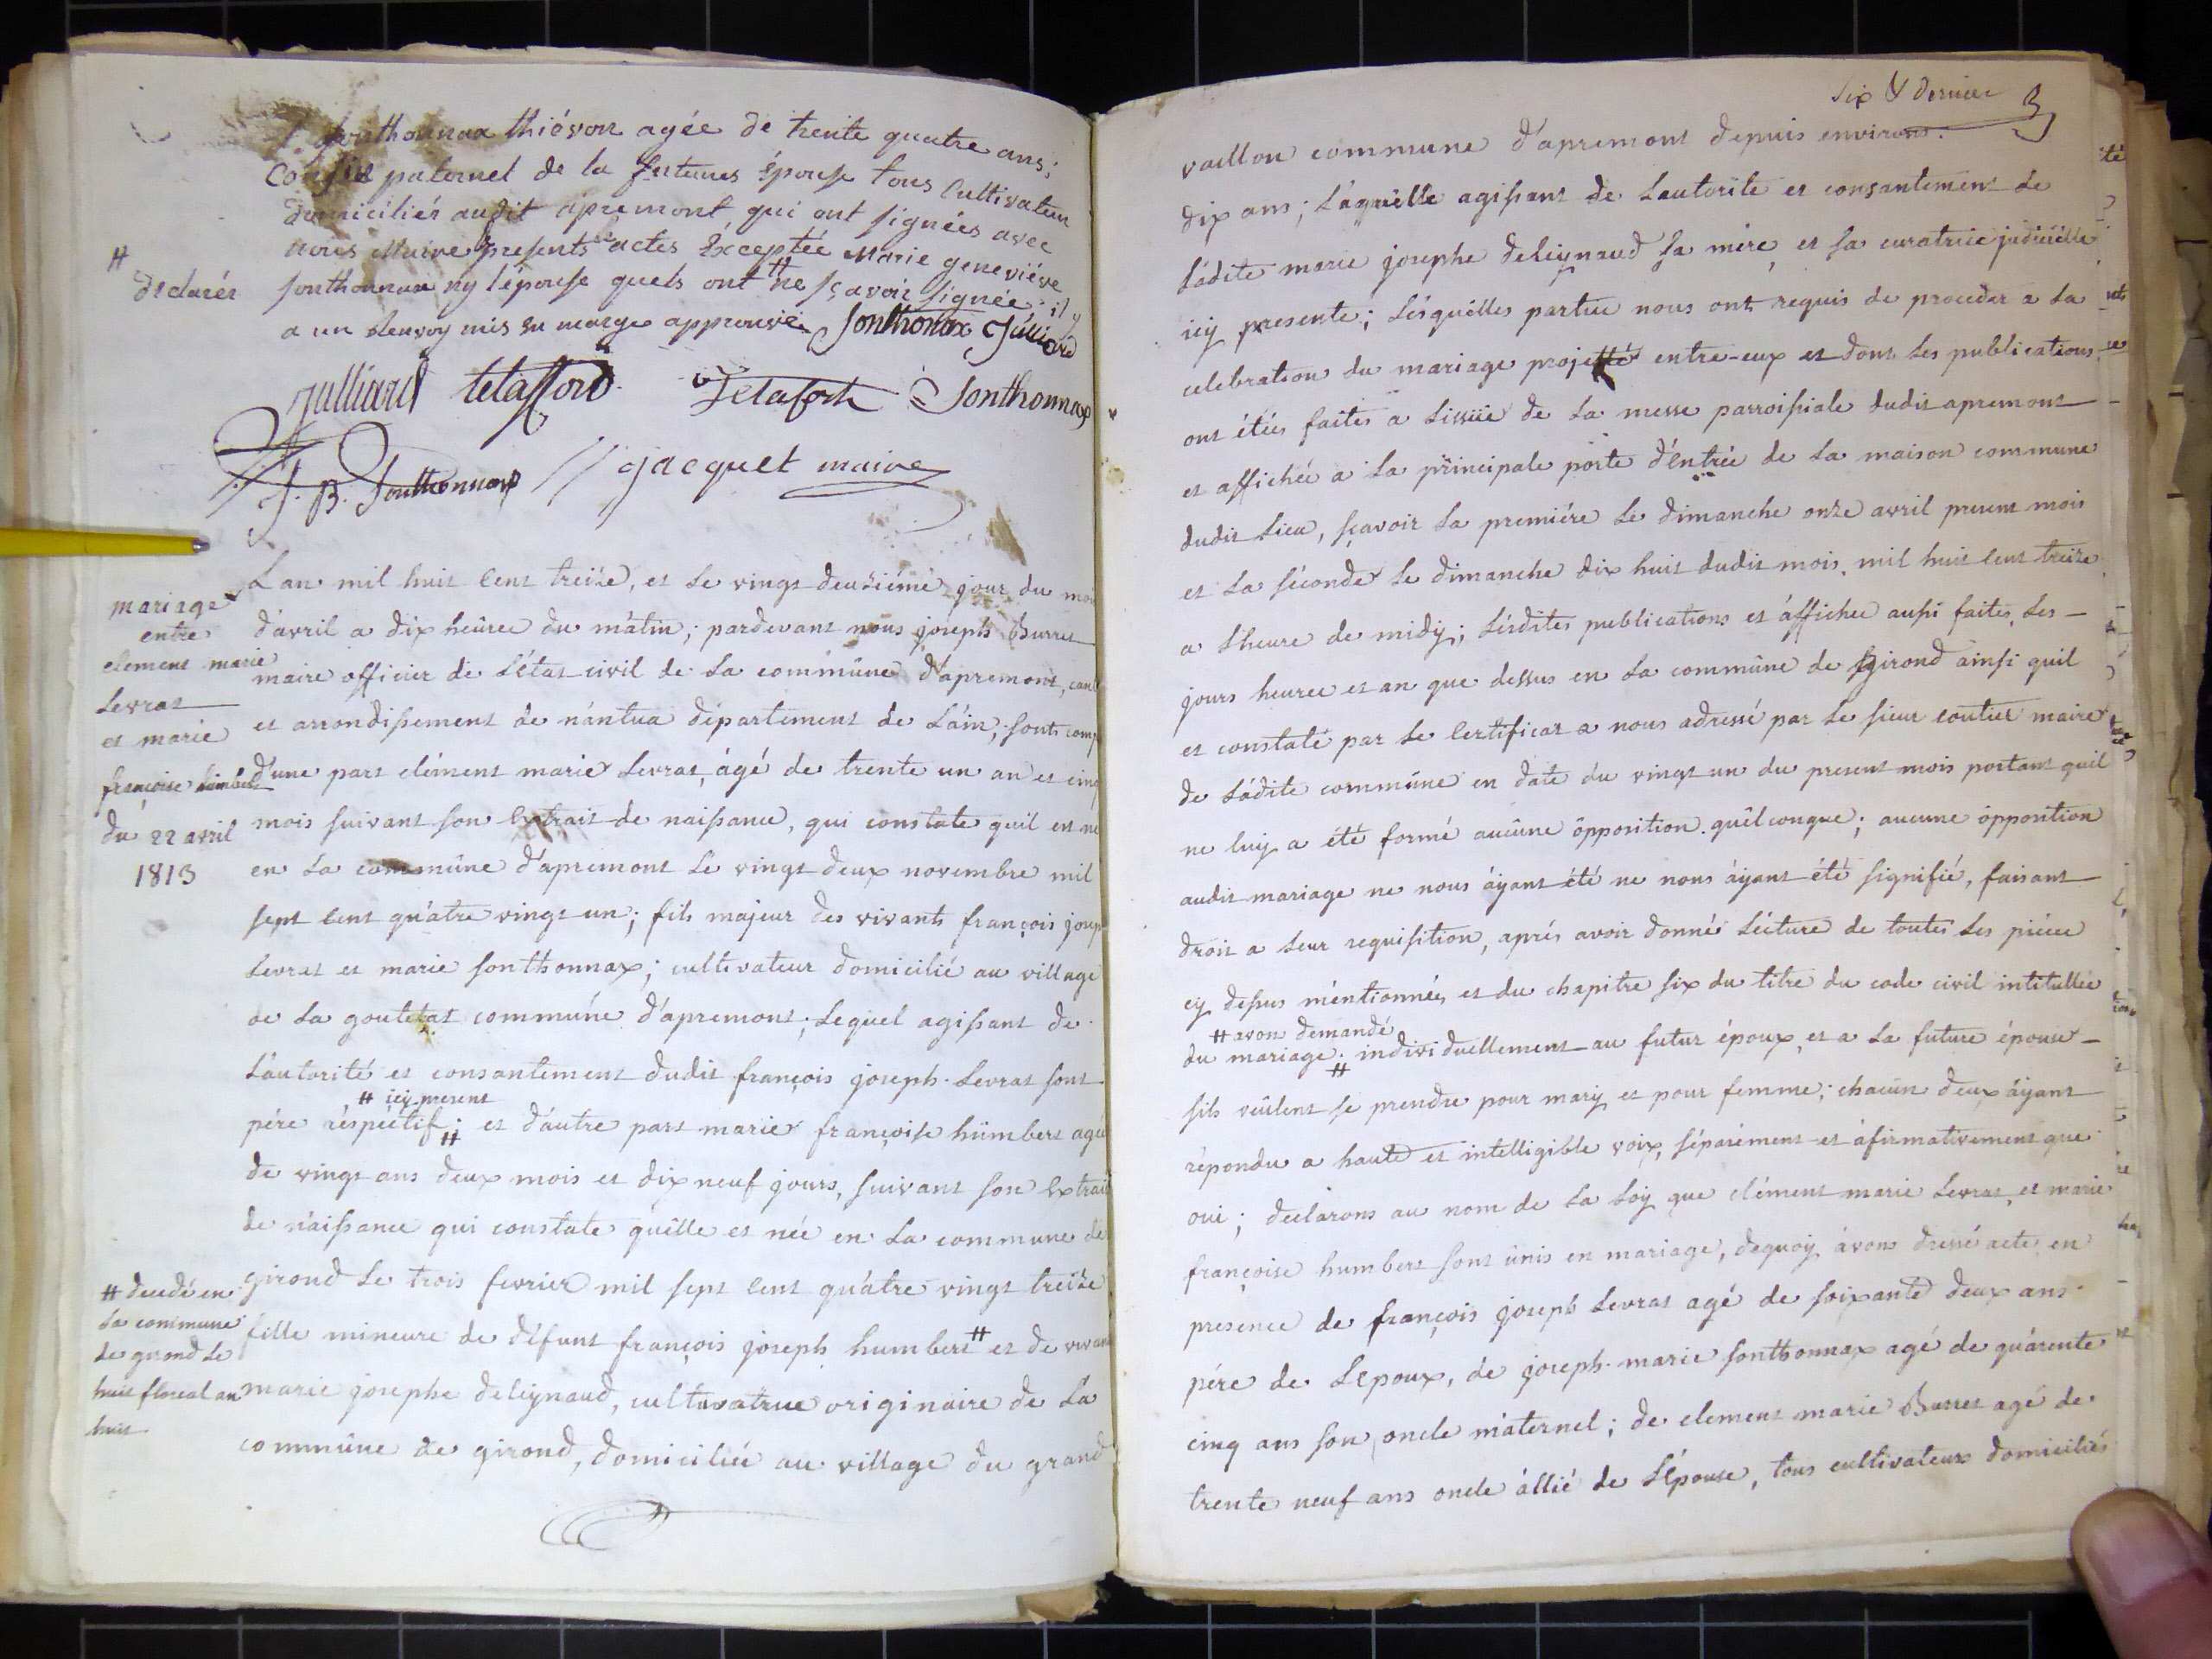 Sonthonnax thiévon agée de trente quatre ans;
Cousin paternel de la futures épouse tous Cultivateur
domiciliés audit apremont, qui ont signées avec
nous Maire presents actes Exceptée Marie geneviéve
sonthonnax ny l'épouse quels ont # ne sçavoir signée: il y
a un Renvoy mis en marge approuvé Sonthonax Julliard
#
declarés
Julliard Delassord Delaforh Sonthonnax
J. B. Sonthonnax Jacquet maire
mariage
entre
clement marie
Levrat
et marie
françoise humbert
du 22 avril
1813
Lan mil huit Cent treize, et le vingt deuxiémé jour du moi
d'avril a dix heûree du mâtin; pardevant nous joseph Burret
maire officier de L'état civil de La commûne d'apremont, cant
et arrondissement de nântua département de Láin; sont comp
d'une part clément marie Levrat, âgé de trente un an et cinq
mois suivant son Extrait de naissance, qui constate quil est né
en La commûne d'apremont Le vingt deux novembre mil
sept Cent quâtre vingt un; fils majeur des vivants françois josep
Levrat et marie sonthonnax; cultivateur domicilié au village
de La goutetat commûne d'apremont; Lequel agissant de
L'autorité et consantement dudit françois joseph Levrat sont
# icy present
pére réspéctif; # et d'autre part marie françoise hûmbert agée
de vingt ans deux mois et dix neuf jours, suivant son Extrait
de náissance qui constate quêlle et née en La commune de
girond Le trois fevrier mil sept Cent quâtre vingt treize
fille mineure de défunt françois joseph humbert # et de vivant
marie josephe deleynaud, cultivatrice originaire de La
commûne de girond, domiciliée au village du grand
# decedé en
La commune
de girond Le
huit floreal an
huit
Six & Dernier
vaillon commune d'apremont depuis environs
dix ans; Láquêlle agissant de Lautorité et consantement de
Ládite marie josephe deleynaud sa mére, et sa curatrice judiciélle
icy presente; Lésquélles partue nous ont requis de proceder a La
celebration du mariage projetté entre-eux et dont Les publications
ont étées faites a Lissüe de La messe parroissiale dudit apremont
et affichée a La principale porte d'éntrée de La maison commune
dudit Lieu, sçavoir La premiére Le dimanche onze avril present mois
et La séconde Le dimanche dix huit dudit mois, mil huit Cent treize
a Lheure de midy; Lésdites publications et âffichee aussi faites, Les
jours heuree et an que dessus en La commûne de girond ainsi quil
et constaté par Le Certificat a nous adressé par Le sieur coutier maire
de Ládite commûne en date du vingt un du present mois portant quil
ne luy a été formé aucûne ôpposition quêlconque; aucune ôpposition
audit mariage ne nous âyant été ne nous âyant été signifié, faisant
droit a Leur requisition, aprés avoir donné Lécture de toutes Les piécee
cy dessus mentionnés, et du chapitre six du titre du code civil intitullée
# avon demandé
du mariage; # individuellement au futur époux, et a La future épouse
sils vêulent se prendre pour mary et pour femme; chacûn deux âyant
répondu a haute et intelligible voix, séparément et áfirmativement que
oui; declarons au nom de La Loy que clément marie Levrat et marie
françoise humbert sont ûnis en mariage, dequoy âvons dressé acte en
presence de françois joseph Levrat agé de soixante deux ans
pére de Lépoux, de joseph marie sonthonnax agé de quárente
cinq ans son oncle máternel; de clement marie Burret agé de
trente neuf ans oncle állié de L'Epouse, tous cultivateurs domiciliés